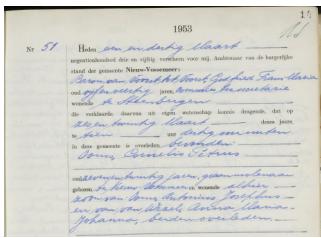 14
1953
Nr 51. Heden een en dertig Maart
negentienhonderd drie en vijftig verscheen voor mij, Ambtenaar van de burgerlijke
stand der gemeente Nieuw-Vossemeer:
Baron van Voorst tot Voorst, Godfried Frans Maria
oud vijf en veertig jaren,
wonende te Steenbergen
die verklaarde daarvan uit eigen wetenschap kennis dragende, dat op
zes en twintig Maart dezes jaars
te tien uur dertig minuten
in deze gemeente is overleden, bevonden
Doms, Cornelis Petrus
oud zeven en twintig jaren,
geboren te en wonende aldaar
zoon van Doms, Antonius Josephus
en van van Anna Maria
Johanna, beiden overleden.